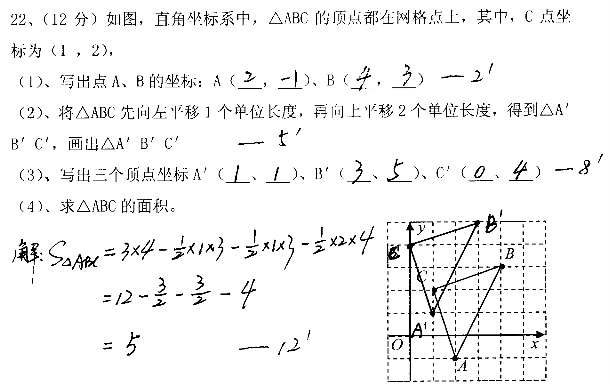 22、（12 分）如图，直角坐标系中，△ABC 的顶点都在网格点上，其中，C 点坐
标为（1 ，2），
（1）、写出点 A、B 的坐标：A（ 2 ，-1）、B（ 4 ， 3 ） — 2′
（2）、将△ABC 先向左平移 1 个单位长度，再向上平移 2 个单位长度，得到△A′
B′ C′，画出△A′ B′ C′ — 5′
（3）、写出三个顶点坐标 A′（ 1 、 1 ）、B′（ 3 、 5 ）、C′（ 0 、 4 ） — 8′
（4）、求△ABC 的面积。
解: S△ABC = 3×4 - 1/2×1×3 - 1/2×1×3 - 1/2×2×4
= 12 - 3/2 - 3/2 - 4
= 5 — 12′
y B′
B
C
A′
O x
A